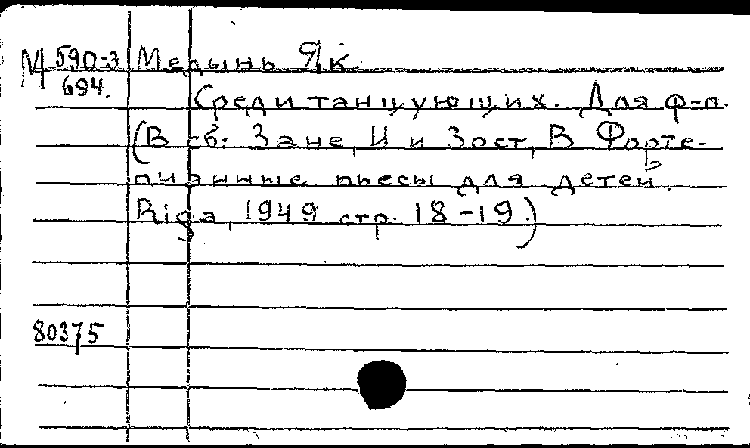 М 590-3 Медынь Як.
694.
Среди танцующих. Для ф-п.
(В сб: Зане, И и Зост, В Форте-
пианные пьесы для детей.
Riga, 1949 стр. 18-19.)
80375